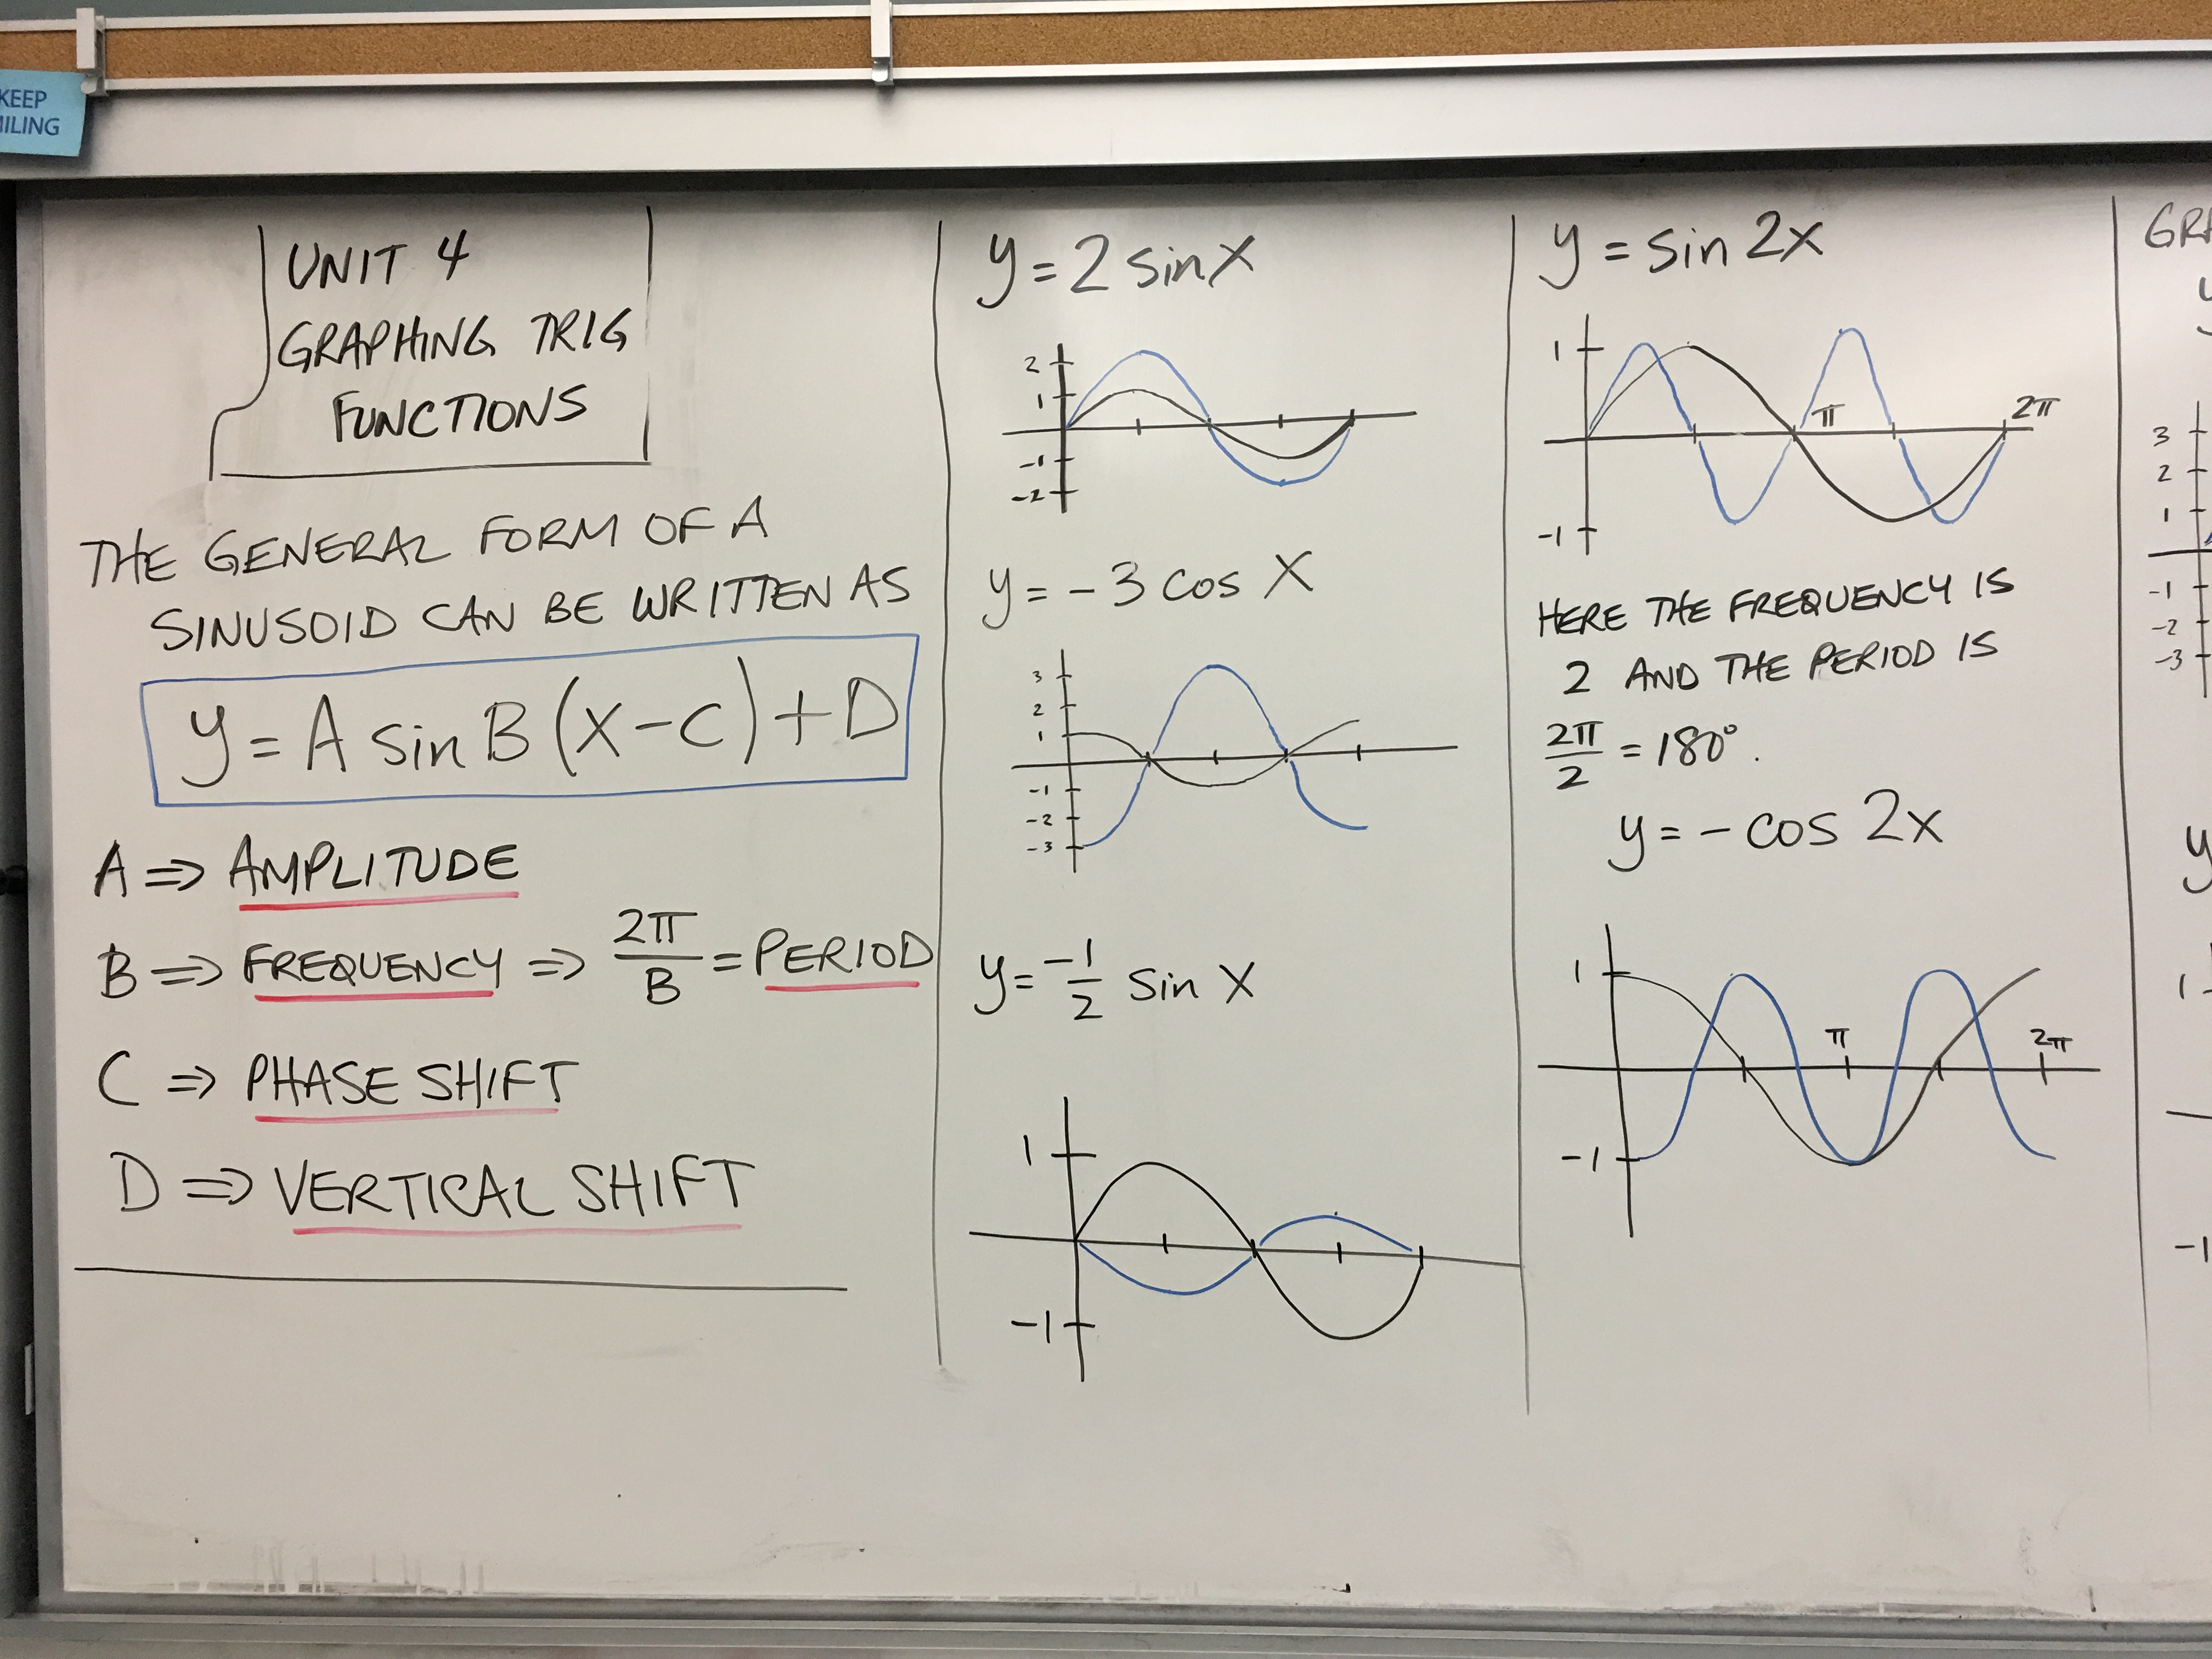 KEEP
UNIT 4
GRAPHING TRIG
FUNCTIONS
THE GENERAL FORM OF A
SINUSOID CAN BE WRITTEN AS
y = A sin B (x - C) + D
A ⇒ AMPLITUDE
B ⇒ FREQUENCY ⇒ 2π/B = PERIOD
C ⇒ PHASE SHIFT
D ⇒ VERTICAL SHIFT
y = 2 sin x
2
1
-1
-2
y = -3 cos x
3
2
1
-1
-2
-3
y = -1/2 sin x
1
-1
y = sin 2x
1
π
2π
-1
HERE THE FREQUENCY IS
2 AND THE PERIOD IS
2π/2 = 180°.
y = - cos 2x
1
π
2π
-1
3
2
1
-1
-2
-3
y
1
-1